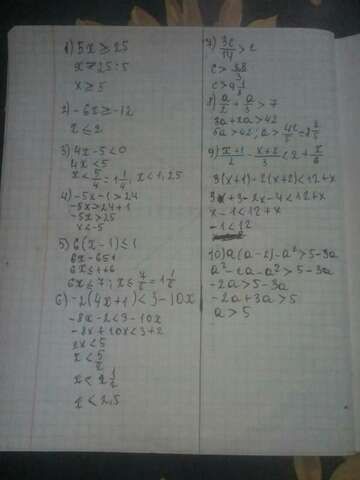 1) 5x ≥ 25
x ≥ 25:5
x ≥ 5
2) -6x ≥ -12
x ≤ 2
3) 4x-5<0
4x<5
x<5/4=1 1/4, x<1,25
4) -5x-1>24
-5x>24+1
-5x>25
x<-5
5) 6(x-1)≤1
6x-6≤1
6x≤1+6
6x≤7; x≤7/6=1 1/6
6) -2(4x+1)<3-10x
-8x-2<3-10x
-8x+10x<3+2
2x<5
x<5/2
x<2 1/2
x<2,5
7) 3c/14>2
c>28/3
c>9 1/3
8) a/2+a/3>7
3a+2a>42
5a>42; a>42/5=8 2/5
9) x+1/2-x+2/3<2+x/6
3(x+1)-2(x+2)<12+x
3x+3-2x-4<12+x
x-1<12+x
-1<12
10) a(a-2)-a²>5-3a
a²-2a-a²>5-3a
-2a>5-3a
-2a+3a>5
a>5